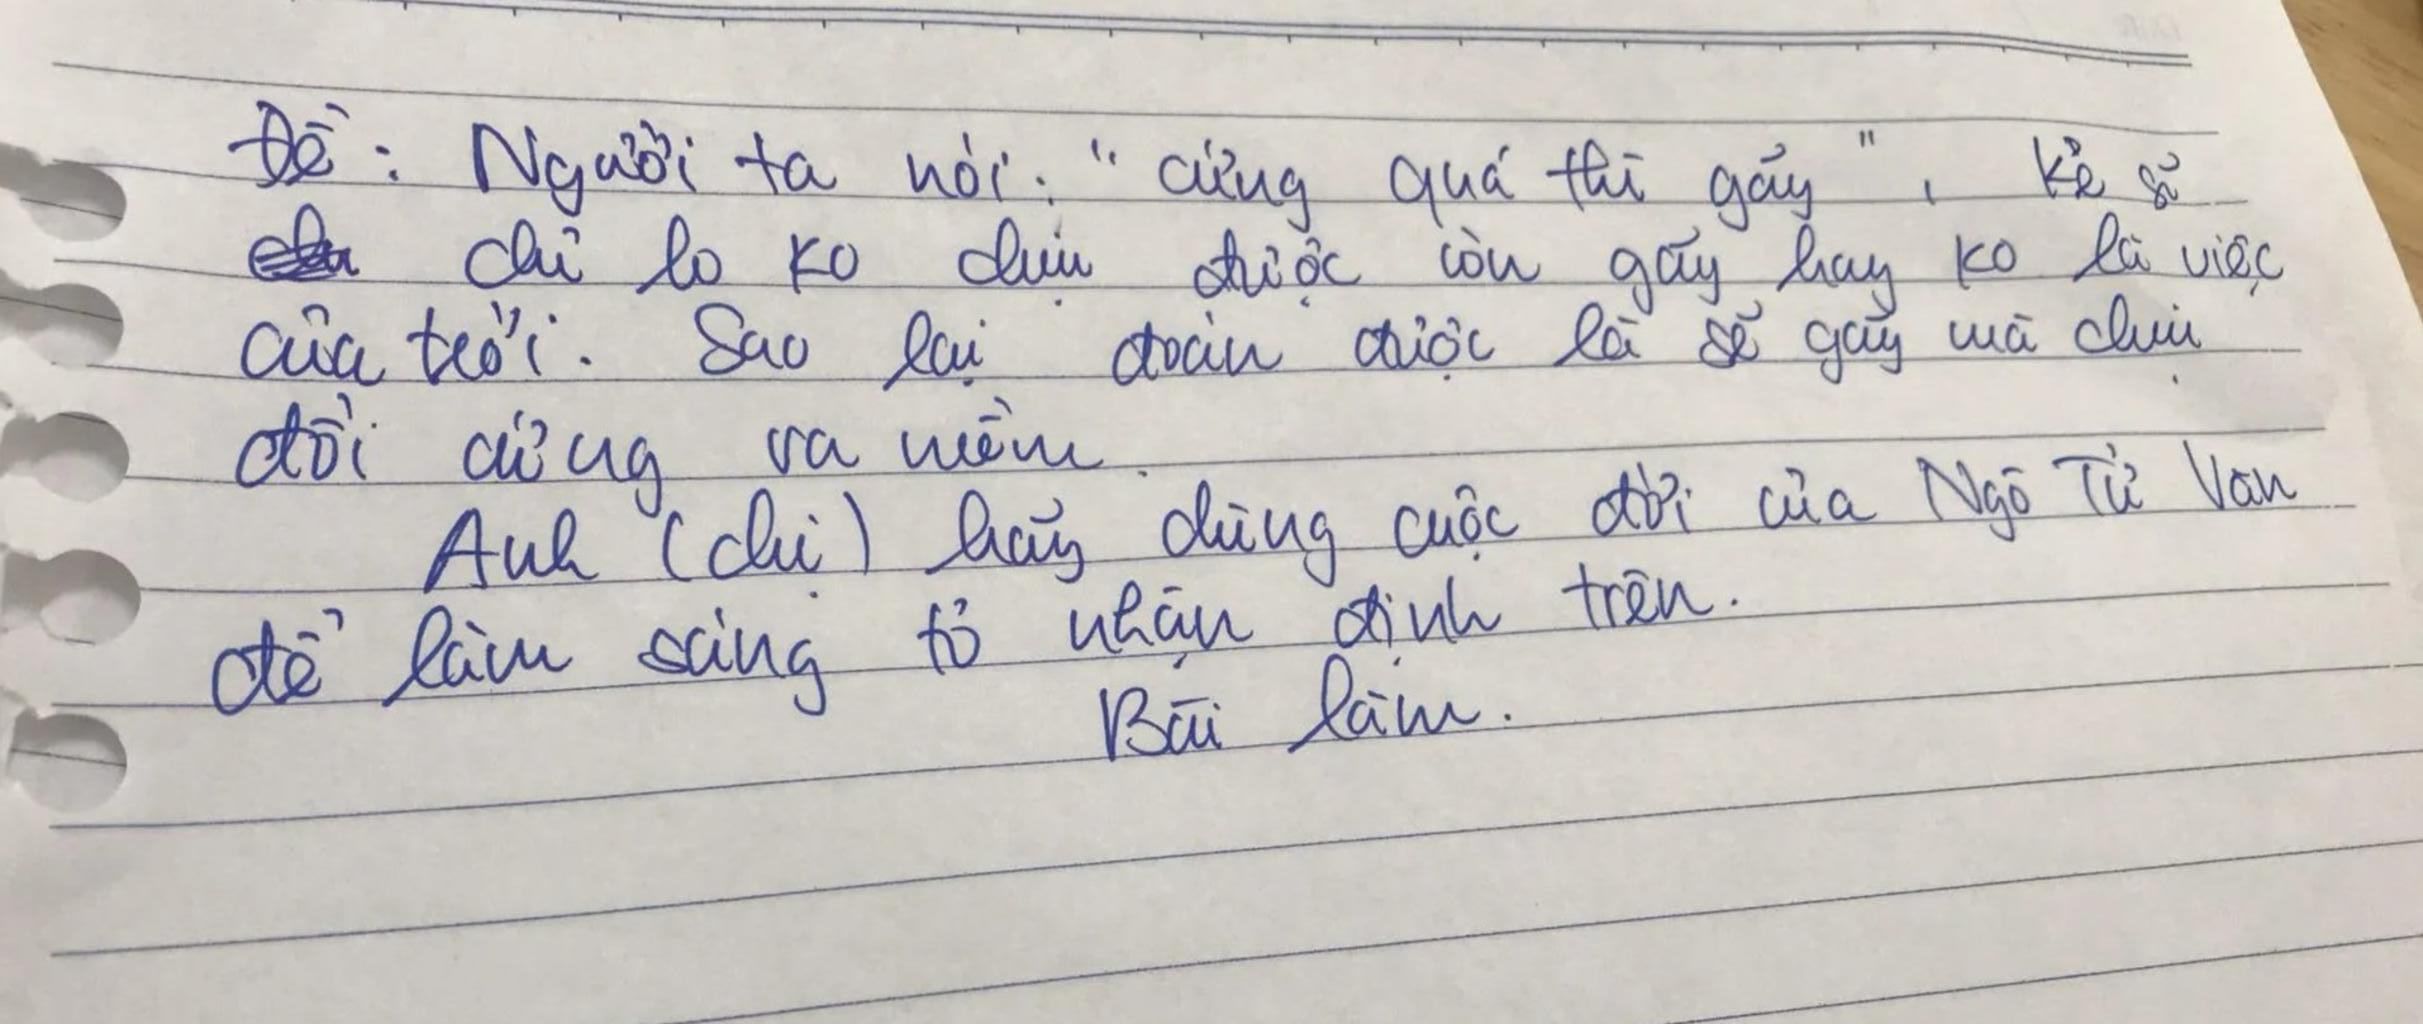 Đề: Người ta nói: "cứng quá thì gãy", kẻ sĩ
chỉ lo ko chịu được còn gãy hay ko là việc
của trời. Sao lại đoán được là sẽ gãy mà chịu
đổi cứng ra mềm.
Anh (chị) hãy dùng cuộc đời của Ngô Tử Văn
để làm sáng tỏ nhận định trên.
Bài làm.